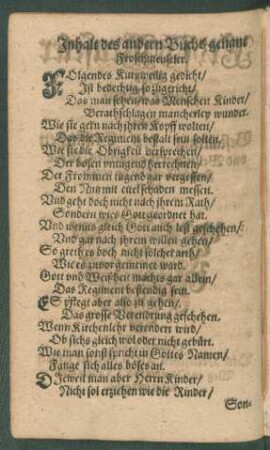 Inhalt des andern Buchs genant
Froschmeuseler.
FOlgendes Kurtzweilig gedicht/
Ist bedechtig so zugericht/
Das man sehen/ was Menschen Kinder/
Berathschlagen mancherley wunder.
Wie sie gern nach ihrem Kopff wolten/
Das die Regiment bestalt sein solten.
Wie sie die Obrigkeit versprechen/
Der bösen untugend herrechnen/
Der Frommen tugend gar vergessen/
Den Nutz mit eitel schaden messen.
Und geht doch nicht nach ihrem Rath/
Sondern wies Gott geordnet hat.
Und wenns gleich Gott auch lest geschehen/
Und gar nach ihrem willen gehen/
So greth es doch nicht solcher arth/
Wie es zuvor gemeinet ward.
Gott und Weißheit machts gar allein/
Das Regiment bestendig sein.
ES pflegt aber also zu gehen/
Das grosse Verendrung geschehen.
Wenn Kirchenlehr verendert wird/
Ob sichs gleich wol oder nicht gebürt.
Wie man sonst spricht in Gottes Namen/
Fange sich alles böses an.
DJeweil man aber Herrn Kinder/
Nicht sol erziehen wie die Rinder/
Son-